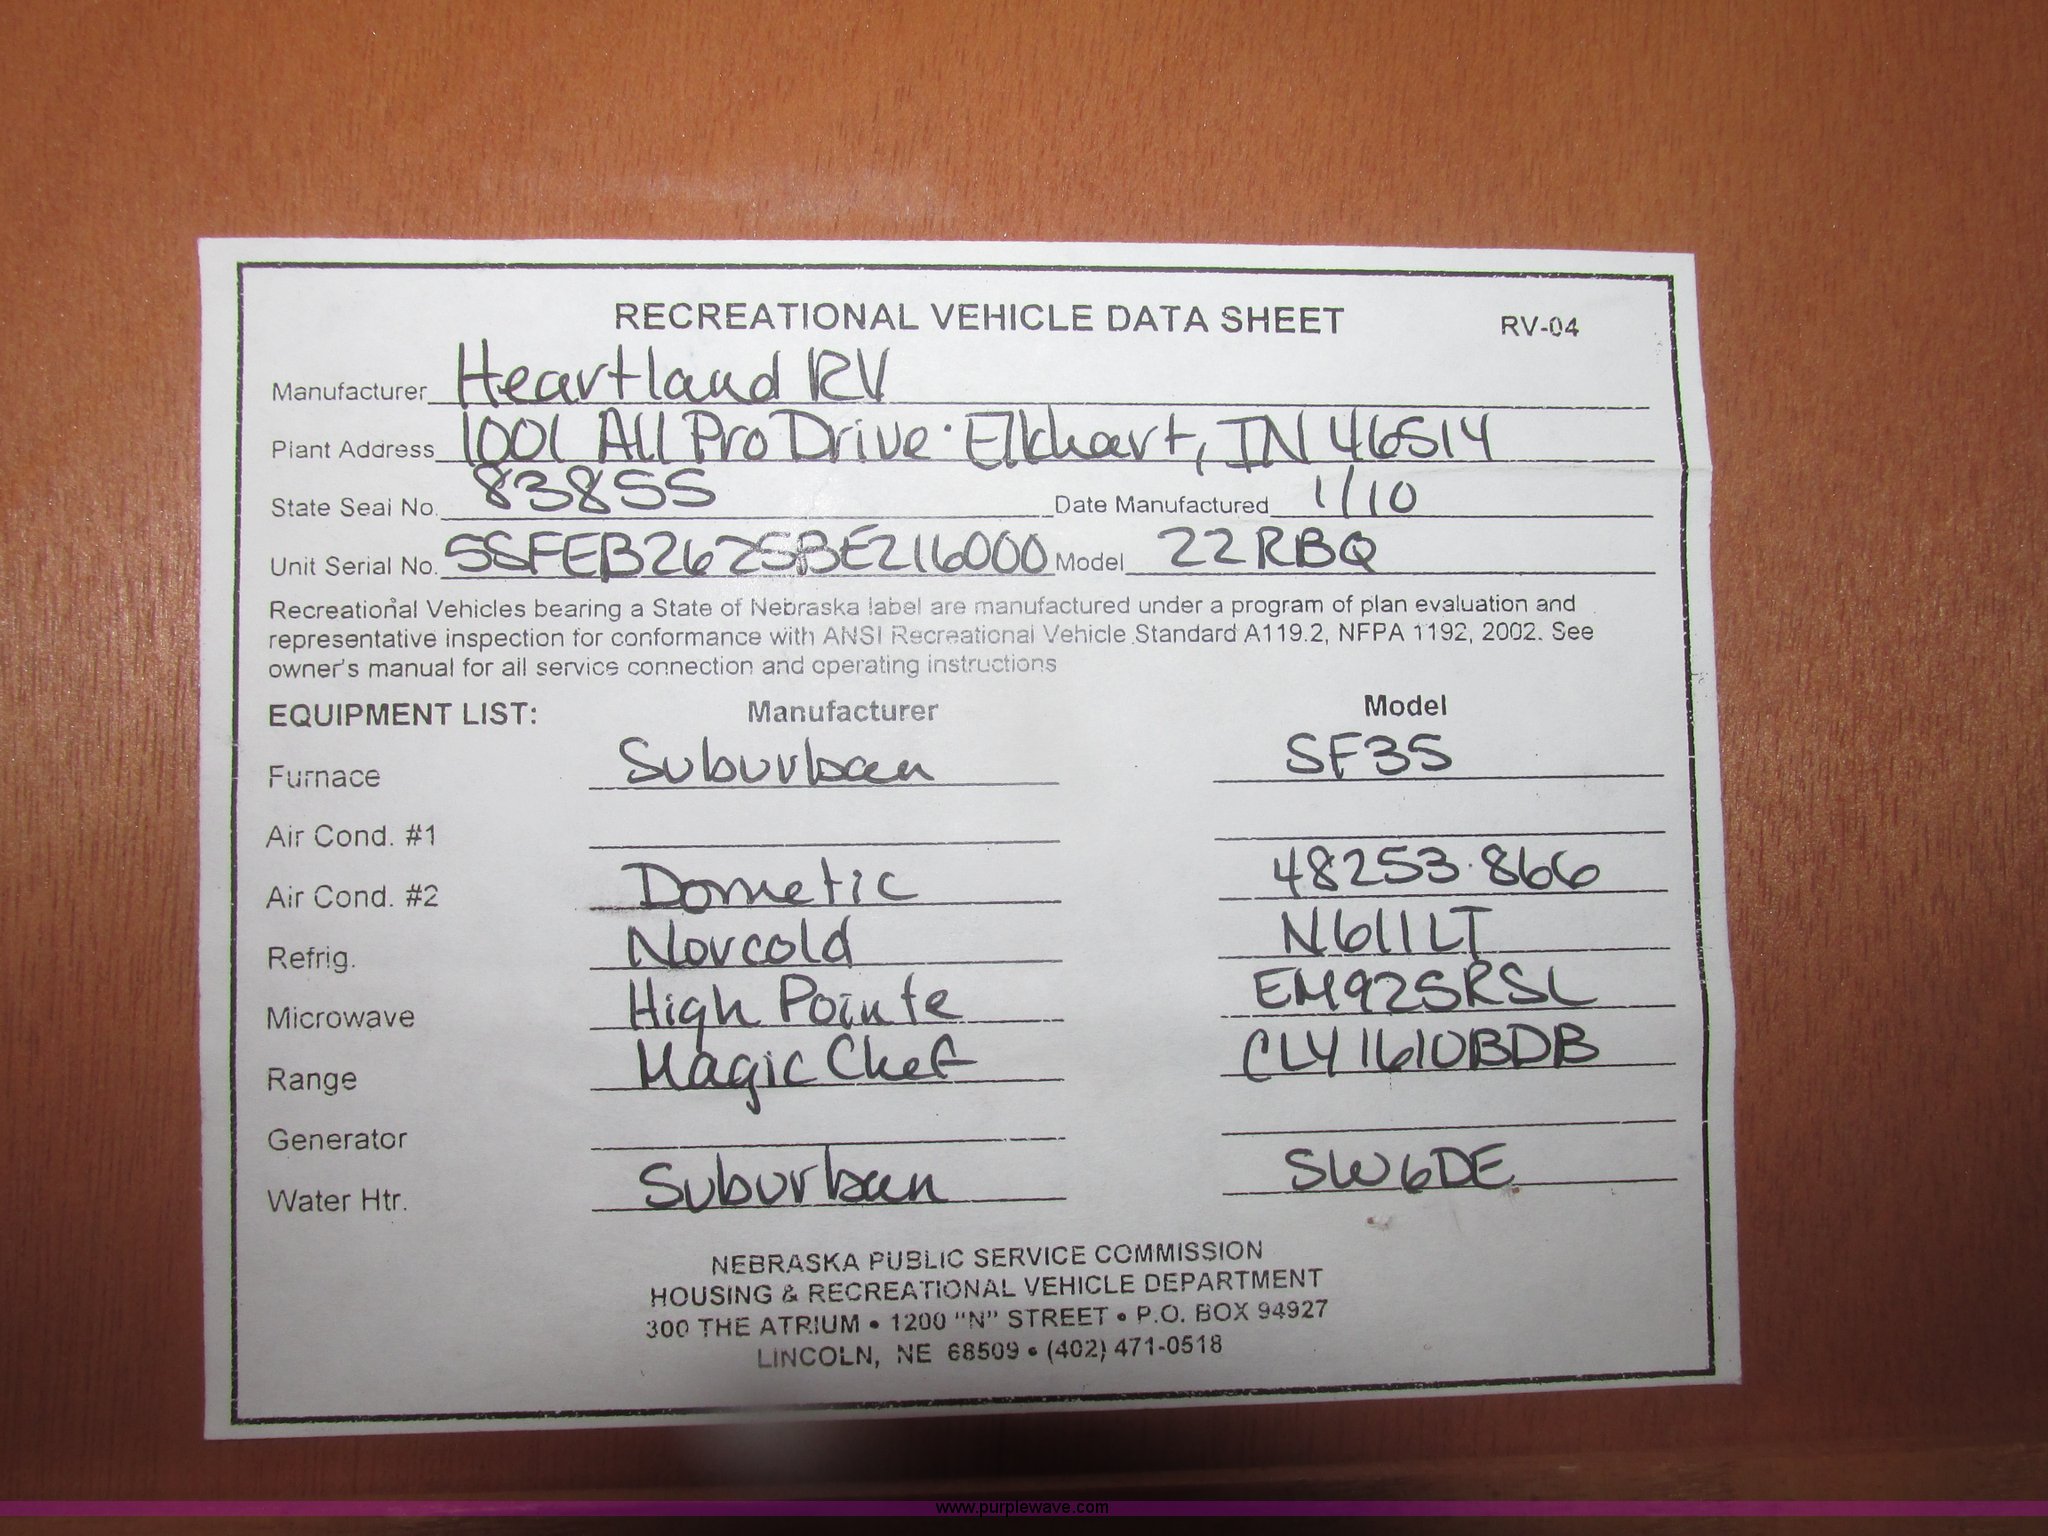 RECREATIONAL VEHICLE DATA SHEET RV-04
Manufacturer Heartland RV
Plant Address 1001 All Pro Drive · Elkhart, IN 46514
State Seal No. 83855 Date Manufactured 1/10
Unit Serial No. 5SFEB2625BE216000 Model 22RBQ
Recreational Vehicles bearing a State of Nebraska label are manufactured under a program of plan evaluation and
representative inspection for conformance with ANSI Recreational Vehicle Standard A119.2, NFPA 1192, 2002. See
owner's manual for all service connection and operating instructions
EQUIPMENT LIST: Manufacturer Model
Furnace Suburban SF35
Air Cond. #1
Air Cond. #2 Dometic 48253.866
Refrig. Norcold N611LT
Microwave High Pointe EM925RSL
Range Magic Chef CLY1610BDB
Generator
Water Htr. Suburban SW6DE
NEBRASKA PUBLIC SERVICE COMMISSION
HOUSING & RECREATIONAL VEHICLE DEPARTMENT
300 THE ATRIUM • 1200 "N" STREET • P.O. BOX 94927
LINCOLN, NE 68509 • (402) 471-0518
www.purplewave.com